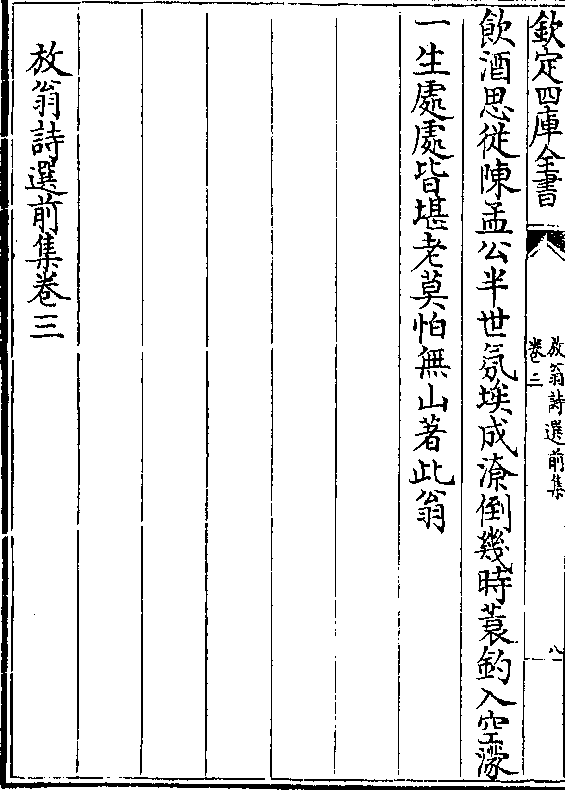 欽定四庫全書
放翁詩選前集
卷三
八
飲酒思從陳孟公半世氛埃成潦倒幾時蓑釣入空濛
一生處處皆堪老莫怕無山著此翁
放翁詩選前集卷三